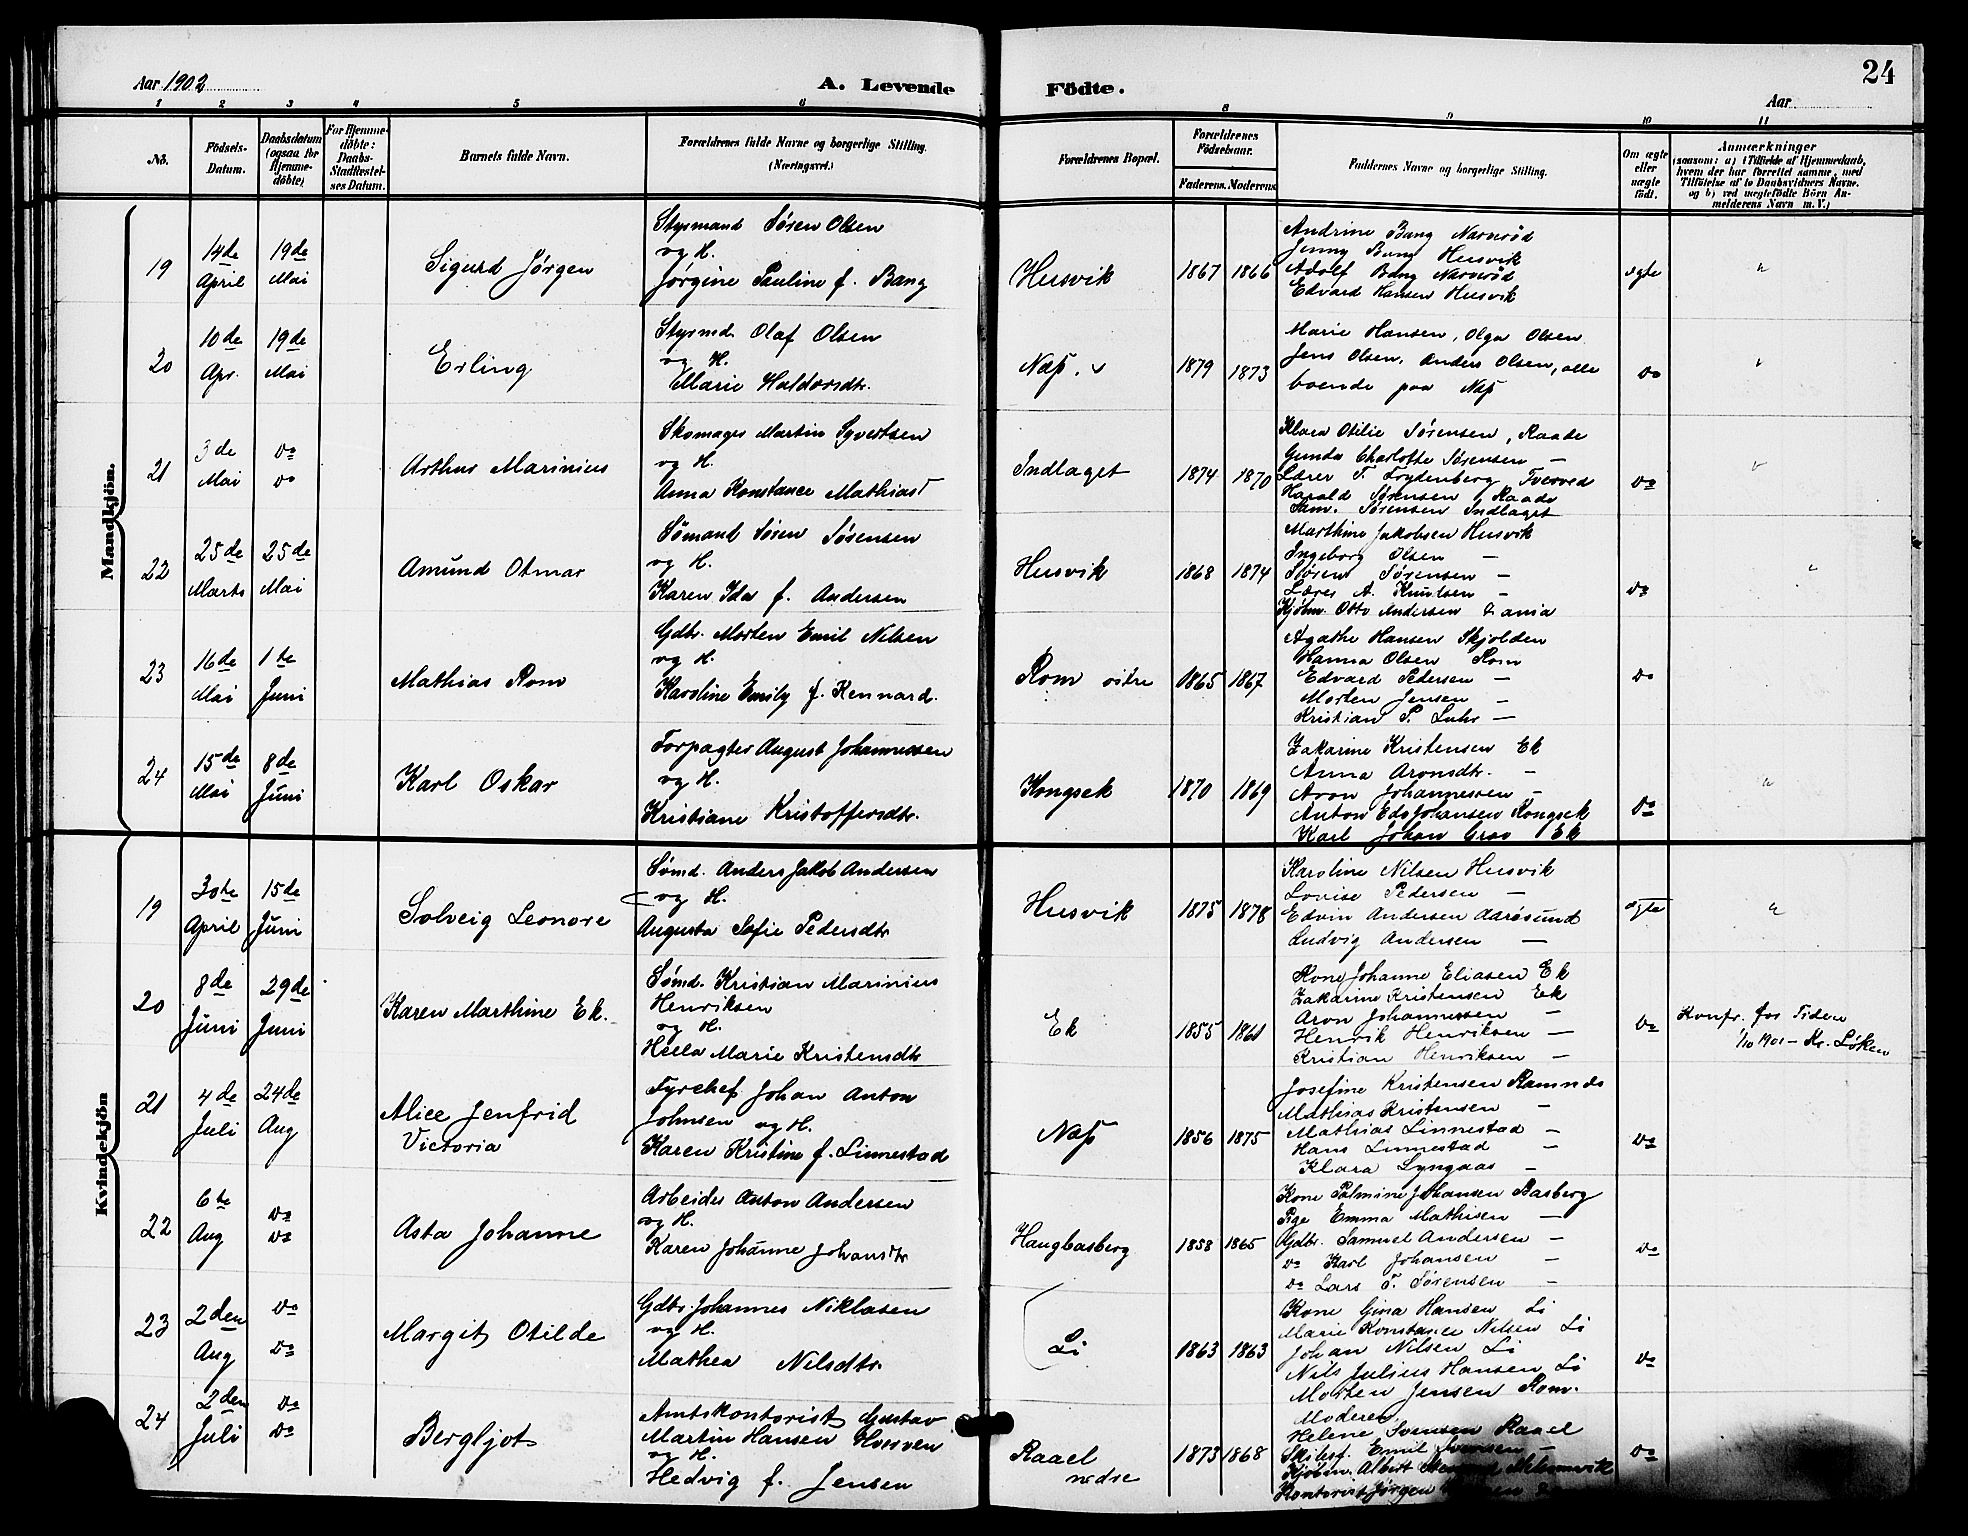 24
Aar 1902
A. Levende
Födte.
Aar
1 2 3 4 5 6 8 9 10 11
No.
Födsels-
Datum.
Daabsdatum
(ogsaa for
Hjemme-
döbte)
For Hjemme-
döbte:
Daabs-
Stadfæstel-
ses Datum.
Barnets fulde Navn.
Forældrenes fulde Navne og borgerlige Stilling.
(Næringsvei.)
Forældrenes Bopæl.
Forældrenes
Födselsaar.
Faderens.
Moderens
Faddernes Navne og borgerlige Stilling.
Om ægte
eller
uægte
födt.
Anmærkninger
(saasom: a) i Tilfælde af Hjemmedaab,
hvem der har forrettet samme, med
Tilföielse af to Daabsvidners Navne.
og b) ved uægtefödte Börn An-
melderens Navn m. V.)
Mandkjön.
19
14de
April
19de
Mai
Sigurd Jørgen
Stysmand Søren Olsen
og H.
Jørgine Pauline f. Bang
Husvik
1867
1866
Andrine Bang Narverød
Jenny Bang Husvik
Adolf Bang Narverød
Edvard Hansen Husvik
ægte
"
20
10de
Apr.
19de
Mai
Erling
Styrmd. Olaf Olsen
og H.
Marie Haldorsdtr.
Næs. v
1879
1873
Marie Hansen, Olga Olsen
Jens Olsen, Anders Olsen, alle
boende paa Næs
do
"
21
3de
Mai
do
do
Arthur Marinius
Skomager Martin Syvertsen
og H.
Anna Konstance Mathiasd
Indlaget
1874
1870
Klara Otilie Sørensen, Raade
Gunda Charlotte Sørensen —
Lærer T. Frydenberg Tverved
Harald Sørensen Raade
Sam. Sørensen Indlaget
do
"
22
25de
Marts
25de
Mai
Amund Otmar
Sømand Søren Sørensen
og H.
Karen Ida f. Andersen
Husvik
1868
1874
Marthine Jakobsen Husvik
Ingeborg Olsen —
Søren Sørensen —
Lærer A. Knutsen —
Kjøbm. Otto Andersen Fania
do
"
23
16de
Mai
1te
Juni
Mathias Rom
Gdbr. Morten Emil Nilsen
og H.
Karoline Emily f. Kennard.
Rom østre
1865
1867
Agathe Hansen Skjolden
Hanna Olsen Rom
Edvard Petersen —
Morten Jensen —
Kristian P. Luhr —
do
24
15de
Mai
8de
Juni
Karl Oskar
Forpagter August Johannessen
og H.
Kristiane Kristoffersdtr.
Kongsek
1870
1869
Zakarine Kristensen Ek
Anna Aronsdtr. —
Aron Johannessen —
Anton Edv Johansen Kongsek
Karl Johan Grav Ek
do
"
Kvindekjön
19
30te
April
15de
Juni
Solveig Leonore
Sømd. Anders Jakob Andersen
og H.
Augusta Sofie Pedersdtr
Husvik
1875
1878
Karoline Nilsen Husvik
Lovise Pedersen —
Edvin Andersen Aarøsund
Ludvig Andersen —
ægte
"
20
8de
Juni
29de
Juni
Karen Marthine Ek.
Sømd. Kristian Marinius
Henriksen
og H.
Helea Marie Kristensdtr
Ek
1855
1861
Kone Johanne Eliasen Ek
Zakarine Kristensen Ek
Aron Johannessen —
Henrik Henriksen —
Kristian Henriksen —
do
Konfr. for Tiden
1/10 1901 — Kr. Løken
21
4de
Juli
24de
Aug
Alice Jenfrid
Victoria
Fyrchef Johan Anton
Johnsen og H.
Karen Kristine f. Linnestad
Næs
1856
1875
Josefine Kristensen Ramnes
Mathias Kristensen —
Mathias Linnestad —
Hans Linnestad —
Klara Lyngaas —
do
22
6te
Aug
do
do
Asta Johanne
Arbeider Anton Andersen
og H.
Karen Johanne Johansdtr
Haugbasberg
1858
1865
Kone Palmine Johansen Basberg
Pige Emma Mathisen —
Gdbr. Samuel Andersen —
do Karl Johansen —
do Lars T. Sørensen —
do
23
2den
Aug
do
do
Margit Otilde
Gdbr. Johannes Niklasen
og H.
Mathea Nilsdtr.
Li
1863
1863
Kone Gina Hansen Li
Marie Konstance Nilsen Li
Johan Nilsen Li
Nils Julius Hansen Li
Morten Jensen Rom.
do
24
2den
Juli
do
do
Bergljot
Amtskontorist Gustav
Martin Hansen Hverven
og H.
Hedvig f. Jensen
Raael
nedre
1873
1868
Moderen
Helene Svensen Raael
Skibsf. Emil Svensen —
Kjøbm. Albert
Kontorist Jørgen
do